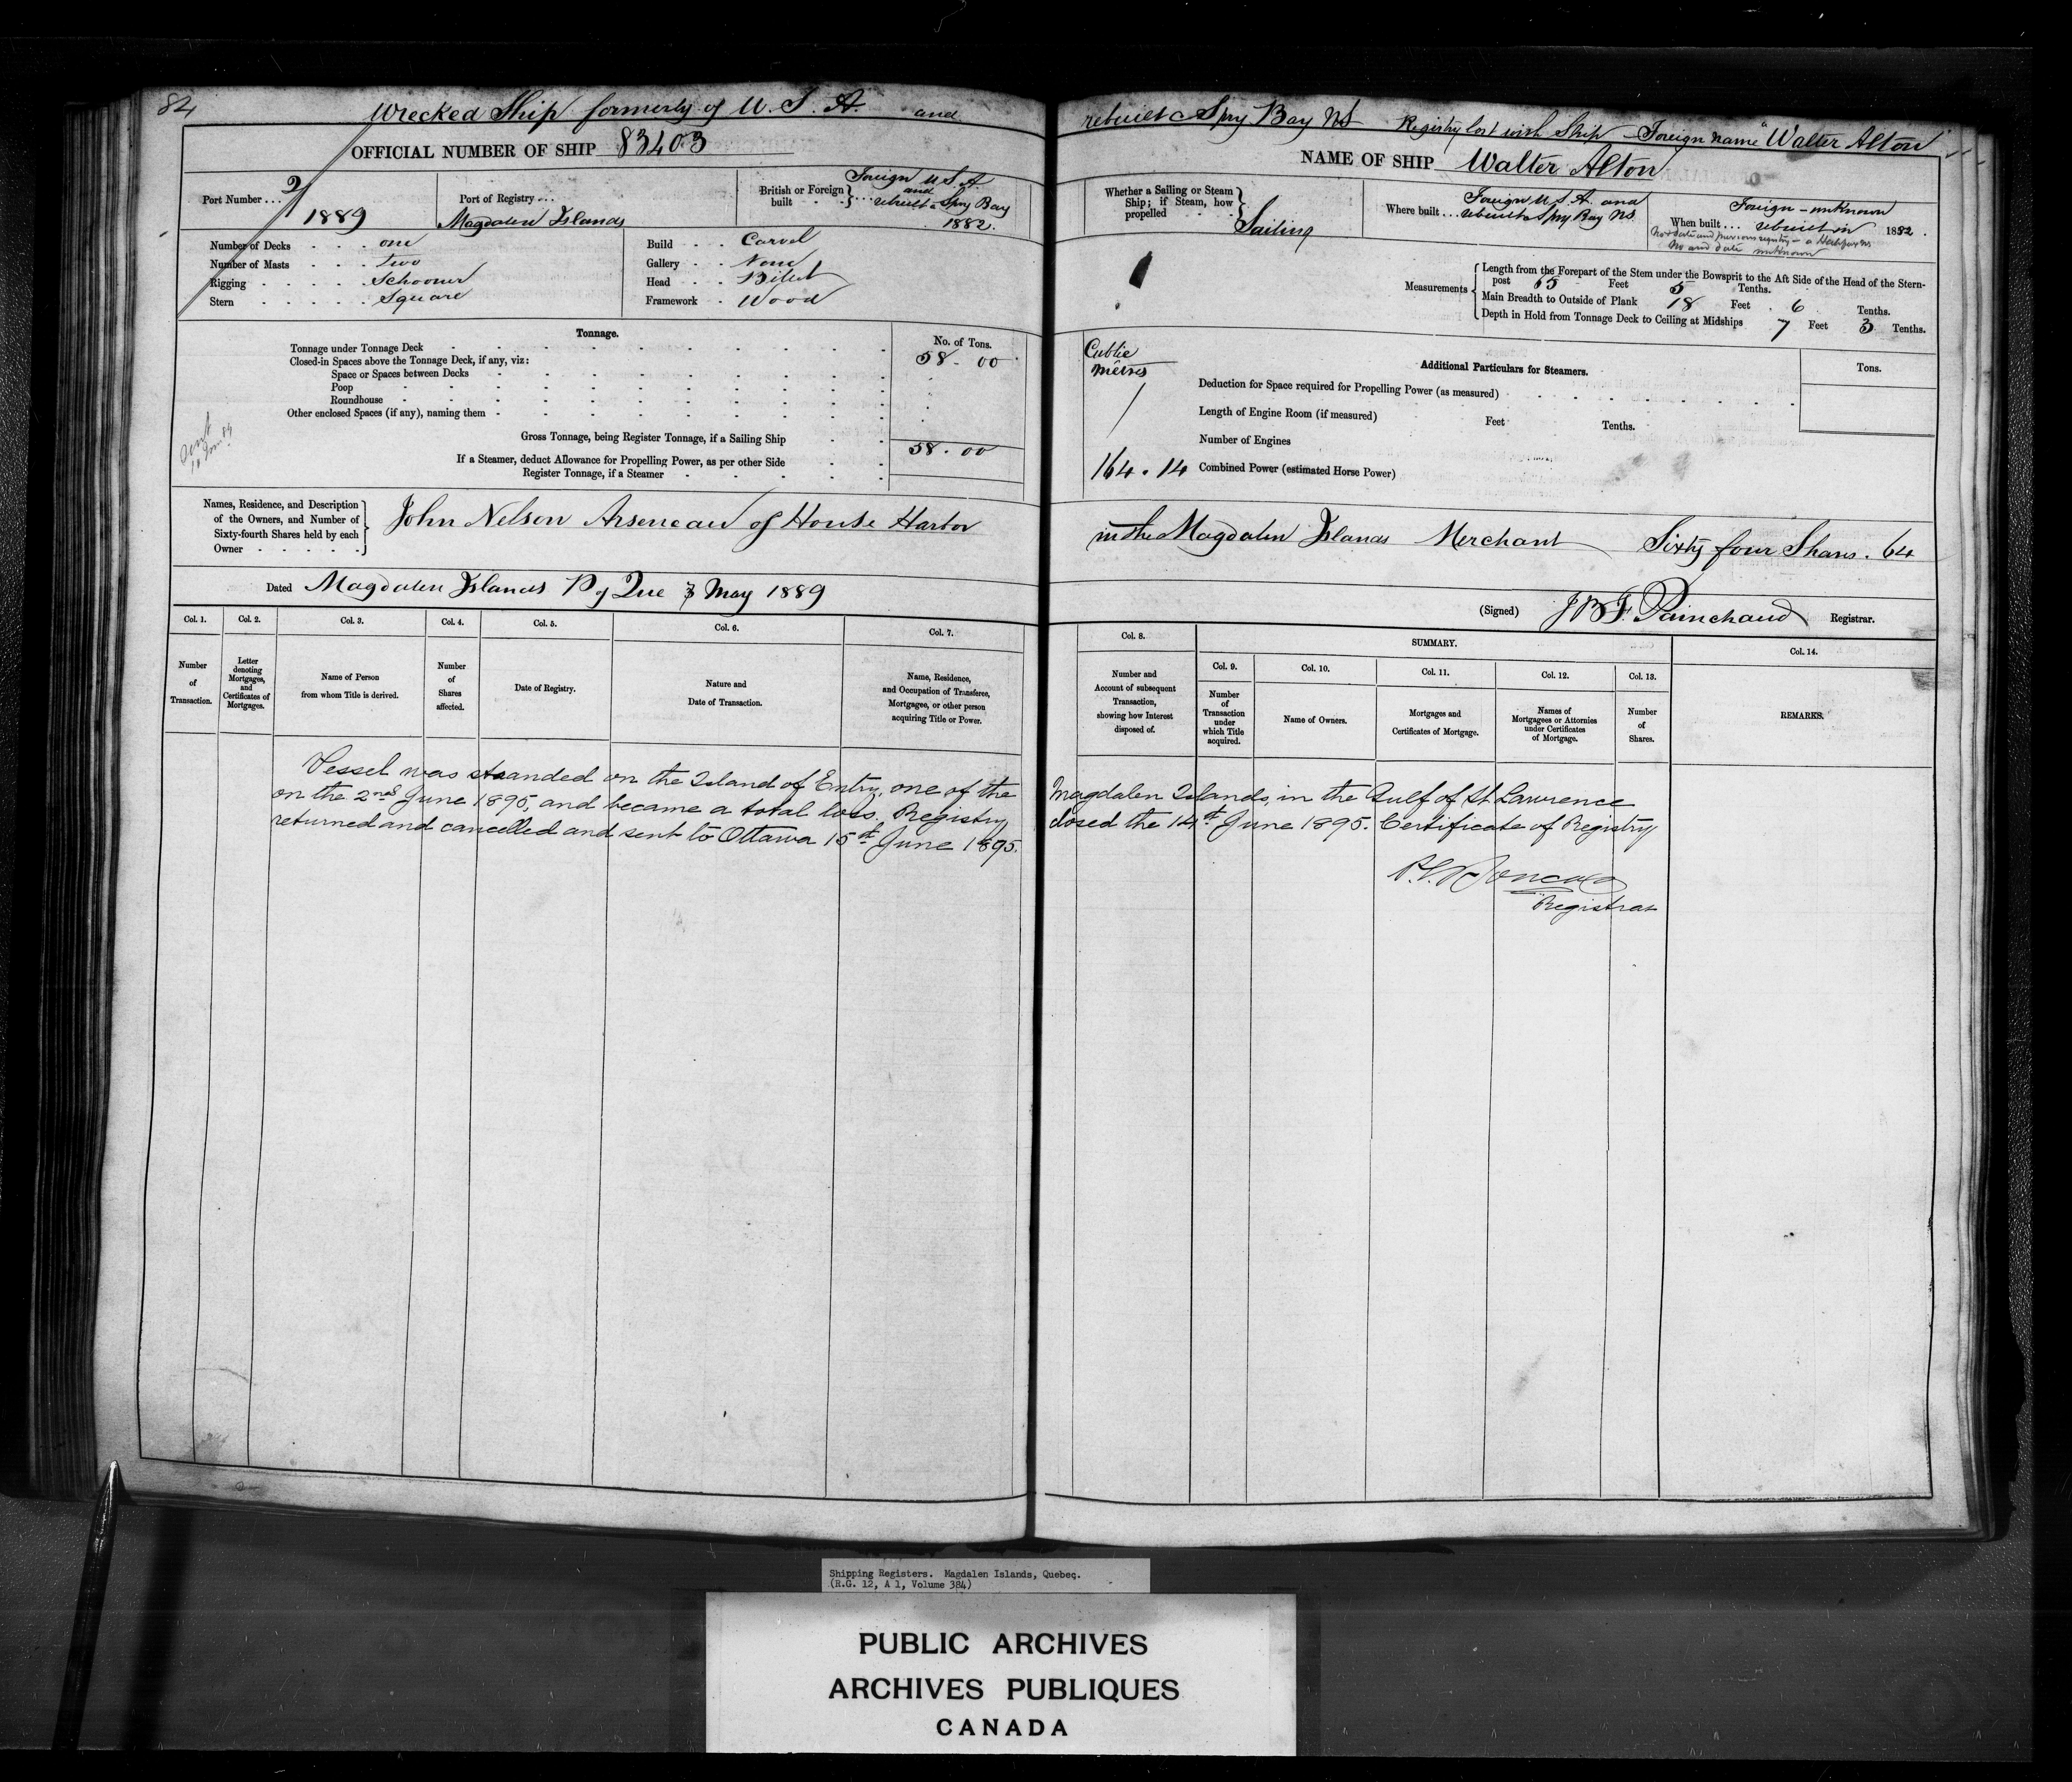 84
Wrecked Ship formerly of U. S. A. and rebuilt a Spry Bay NS Registry lost with Ship Foreign name "Walter Alton"
OFFICIAL NUMBER OF SHIP 83403
NAME OF SHIP Walter Alton
Port Number ... 2/1889
Port of Registry ... Magdalen Islands
British or Foreign built } ... Foreign U S A. and rebuilt a Spry Bay 1882.
Whether a Sailing or Steam Ship; if Steam, how propelled } Sailing
Where built ... Foreign U. S. A. and rebuilt a Spry Bay NS.
When built ... Foreign - unknown rebuilt in 1882.
No & date and previous registry - a Halifax NS
No and date unknown
Number of Decks . . . one
Number of Masts . . . two
Rigging . . . . . Schooner
Stern . . . . . . Square
Build . . Carvel
Gallery . . None
Head . . Billet
Framework . Wood
Measurements
Length from the Forepart of the Stem under the Bowsprit to the Aft Side of the Head of the Stern-
post 65 Feet 5 Tenths.
Main Breadth to Outside of Plank 18 Feet 6 Tenths.
Depth in Hold from Tonnage Deck to Ceiling at Midships 7 Feet 3 Tenths.
Tonnage.
No. of Tons.
Tonnage under Tonnage Deck 58 - 00
Closed-in Spaces above the Tonnage Deck, if any, viz:
Space or Spaces between Decks
Poop
Roundhouse
Other enclosed Spaces (if any), naming them
Gross Tonnage, being Register Tonnage, if a Sailing Ship 58 . 00
If a Steamer, deduct Allowance for Propelling Power, as per other Side
Register Tonnage, if a Steamer
Cubic
Metres
164 . 14
Additional Particulars for Steamers.
Tons.
Deduction for Space required for Propelling Power (as measured)
Length of Engine Room (if measured) Feet Tenths.
Number of Engines
Combined Power (estimated Horse Power)
Names, Residence, and Description
of the Owners, and Number of
Sixty-fourth Shares held by each
Owner
John Nelson Arseneau of House Harbor in the Magdalen Islands Merchant Sixty four Shares. 64
Dated Magdalen Islands P of Que 3 May 1889
(Signed) J B F. Painchaud Registrar.
Col. 1. Col. 2. Col. 3. Col. 4. Col. 5. Col. 6. Col. 7.
Number of Transaction.
Letter denoting Mortgages, and Certificates of Mortgages.
Name of Person from whom Title is derived.
Number of Shares affected.
Date of Registry.
Nature and Date of Transaction.
Name, Residence, and Occupation of Transferee, Mortgagee, or other person acquiring Title or Power.
Col. 8.
Number and Account of subsequent Transaction, showing how Interest disposed of.
SUMMARY.
Col. 9. Col. 10. Col. 11. Col. 12. Col. 13. Col. 14.
Number of Transaction under which Title acquired.
Name of Owners.
Mortgages and Certificates of Mortgage.
Names of Mortgagees or Attornies under Certificates of Mortgage.
Number of Shares.
REMARKS.
Vessel was stranded on the Island of Entry, one of the Magdalen Islands, in the Gulf of St Lawrence
on the 2nd June 1895, and became a total loss. Registry closed the 14th June 1895. Certificate of Registry
returned and cancelled and sent to Ottawa 15th June 1895.
Registrar
Shipping Registers. Magdalen Islands, Quebec.
(R.G. 12, A 1, Volume 384)
PUBLIC ARCHIVES
ARCHIVES PUBLIQUES
CANADA